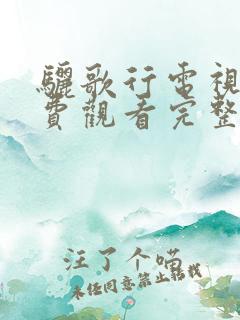 驪歌行電視
費觀看完整
汪了个喵
未经同意禁止转载